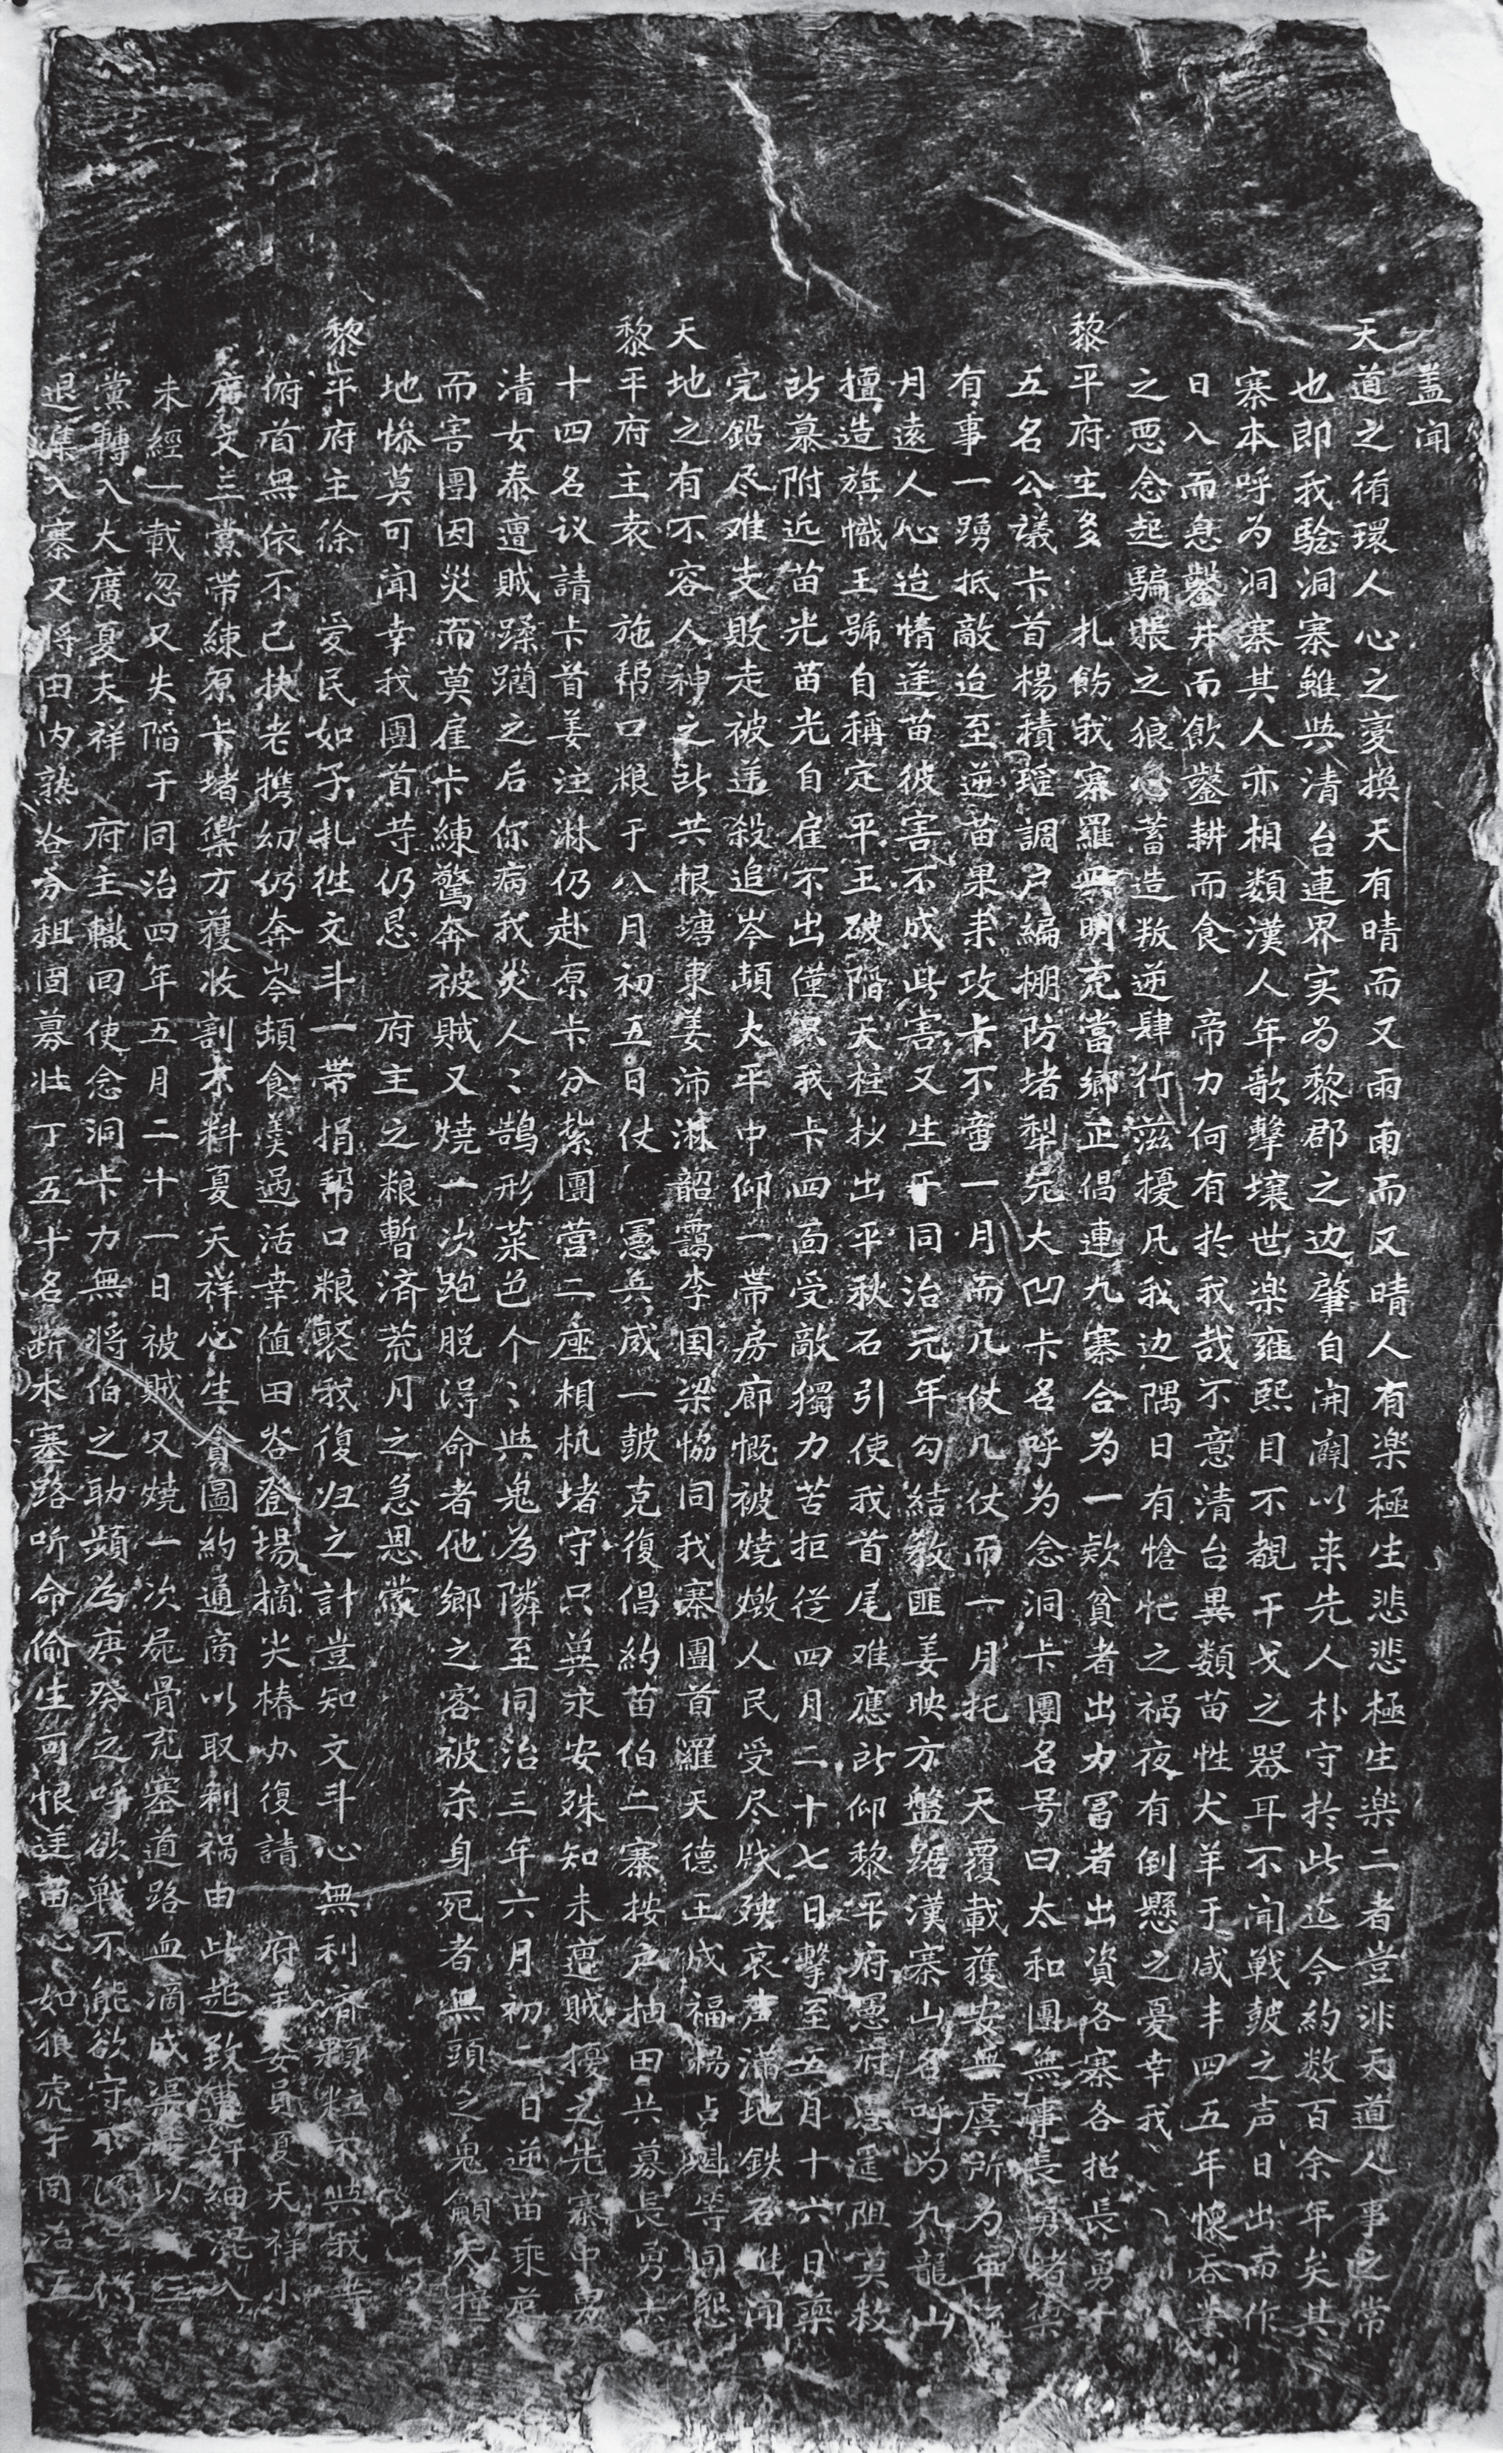 蓋闻
天道之循環人心之憂換天有晴而又雨雨而又晴人有楽極生悲悲極生楽二者豈非天道人事之常
也即我騐洞寨雖與清台連界实為黎郡之边肇自開闢以来先人朴守扵此迄今約数百余年矣其
寨本呼为洞寨其人亦相類漢人年歌擊壤世楽雍熙目不覩干戈之器耳不闻戦皷之声日出而作
日入而息鑿井而飲鑿耕而食 帝力何有扵我哉不意清台異類苗性犬羊于咸丰四五年懷吞
之悪念起騙賬之狼心蓄造叛逆肆行滋擾凡我边隅日有愴忙之祸夜有倒懸之憂幸我
黎平府主多 扎飭我寨羅無明充當鄉正倡連九寨合为一欵貧者出力冨者出資各寨各招長勇十
五名公議卡首楊積瑶調户編棚防堵犁元大凹卡名呼为念洞卡團名号曰太和團無事長勇堵禦
有事一踴抵敵迨至逆苗果来攻卡不啻一月而几仗几仗而一月托 天覆載獲安無虞所为年
月遠人心迨惰逆苗彼害不成此害又生于同治元年勾結教匪姜映方盤踞漢寨山名呼为九龍山
擅造旌幟王號自稱定平王破陷天柱抄出平秋石引使我首尾难應所仰黎平府憲府遥阻莫救
所慕附近苗光苗光自雇不出僅累我卡四高受敵獨力苦拒従四月二十七日擊至五月十六日藥
完鉛尽难支敗走被逆殺追岑頔大平中仰一帯房廊慨被燒燬人民受尽戕殃哀声滿地鉄石難闻
天地之有不容人神之所共恨塘東姜沛淋韶靄李国梁恊同我寨團首羅天德王成福楊占魁等同懇
黎平府主袁 施帮口粮于八月初五日仗 憲兵威一皷克復倡約苗伯二寨按户抽田共募長勇六
十四名议請卡首姜注淋仍赴原卡分紮團营二座相机堵守只冀永安殊知未遭賊擾之先寨中男
清女泰遭賊蹂躪之后你病我炎人〻鵠形菜色个〻與鬼为隣至同治三年六月初一日逆苗乘荒
而害團因災而莫雇卡練驚奔被賊又燒一次跑脱淂命者他鄉之客被杀身死者無頭之鬼籲天撞
地慘莫可闻幸我團首䒭仍恳 府主之粮暫済荒月之急恩蒙
黎平府主徐 受民如子扎徃文斗一帶捐帮口粮聚我復归之計豈知文斗心無利濟顆粒不與我䒭
俯首無依不已扶老携幼仍奔岑頔食羙過活幸值田谷登場摘尖椿办復請 府主委員夏天祥小
廣文三黨帯練原卡堵禦方獲收割不料夏天祥心生貪圖約通商以取利祸由此起致使奸細混入
未經一載忽又失陷于同治四年五月二十一日被賊又燒一次屍骨充塞道路血滴成渠 以三
黨轉入大廣夏天祥 府主轍回使念洞卡力無將伯之助頻为庚癸之呼欲戦不能欲守不
退集入寨又将田内熟谷分租囬募壮丁五十名断木塞路听命偷生可恨逆苗心如狼虎于同治五